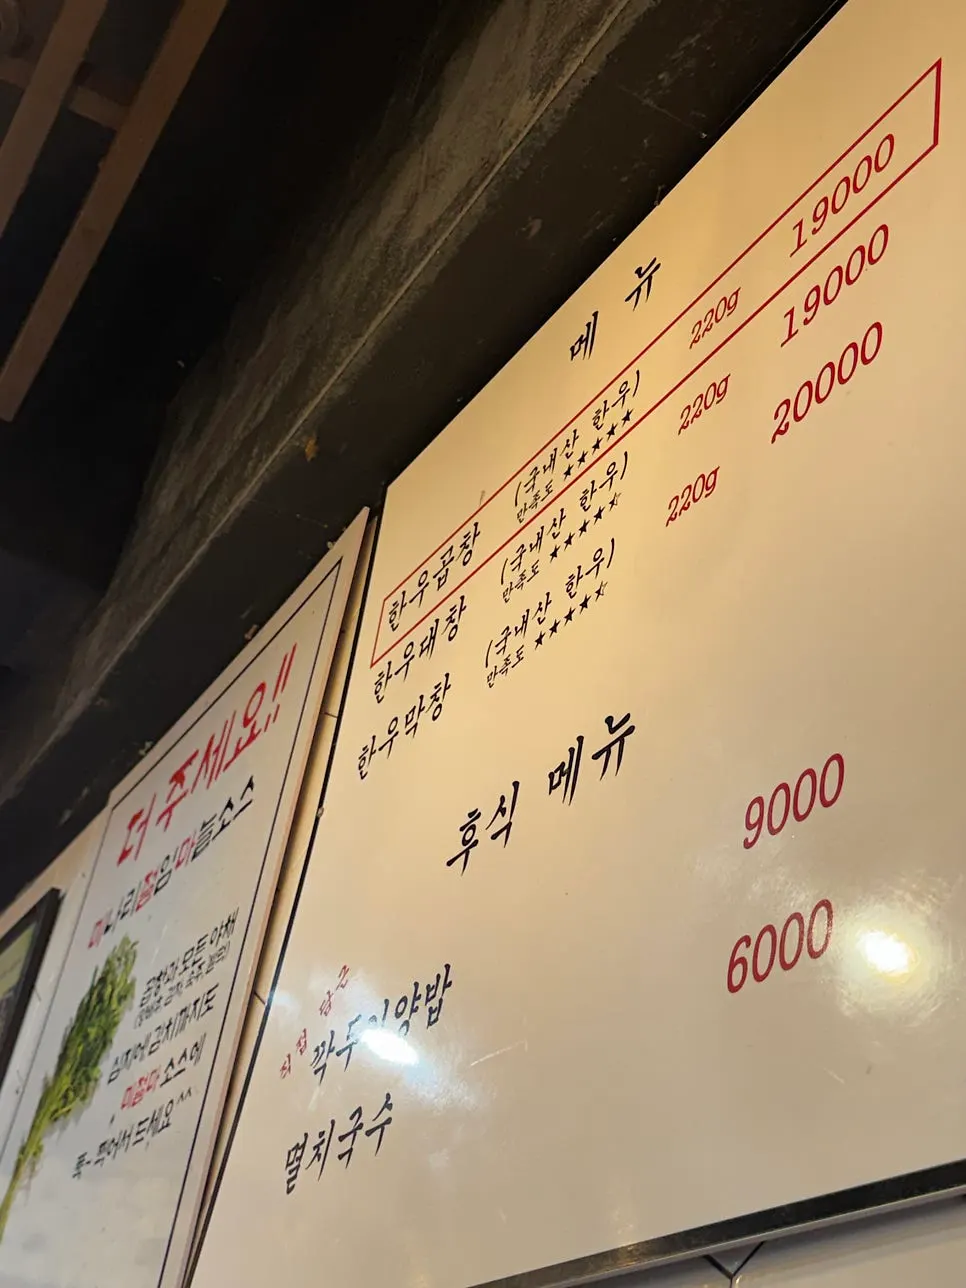 메뉴
한우곱창 (국내산 한우) 220g 19000
만족도 ★★★★★
한우대창 (국내산 한우) 220g 19000
만족도 ★★★★☆
한우막창 (국내산 한우) 220g 20000
만족도 ★★★★☆
후식 메뉴
깍두기양밥 9000
멸치국수 6000
더 주세요!!
미나리절임마늘소스
곱창과 모든 야채
심지어 김치까지도
미절마 소스에
푹~ 찍어서 드세요^^